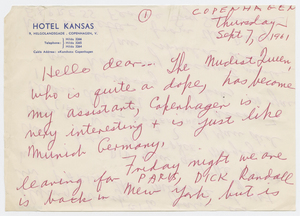 COPENHAGEN
①
HOTEL KANSAS
Thursday
Sept. 7, 1961
Hello dear... The Nudist Queen,
who is quite a dope, has become
my assistant, Copenhagen is
very interesting & is just like
Munich Germany.
Friday night we are
leaving for PARIS, DICK Randall
is back in New York, but is